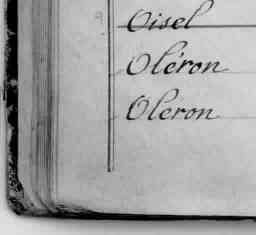 Oisel
Oléron
Oleron